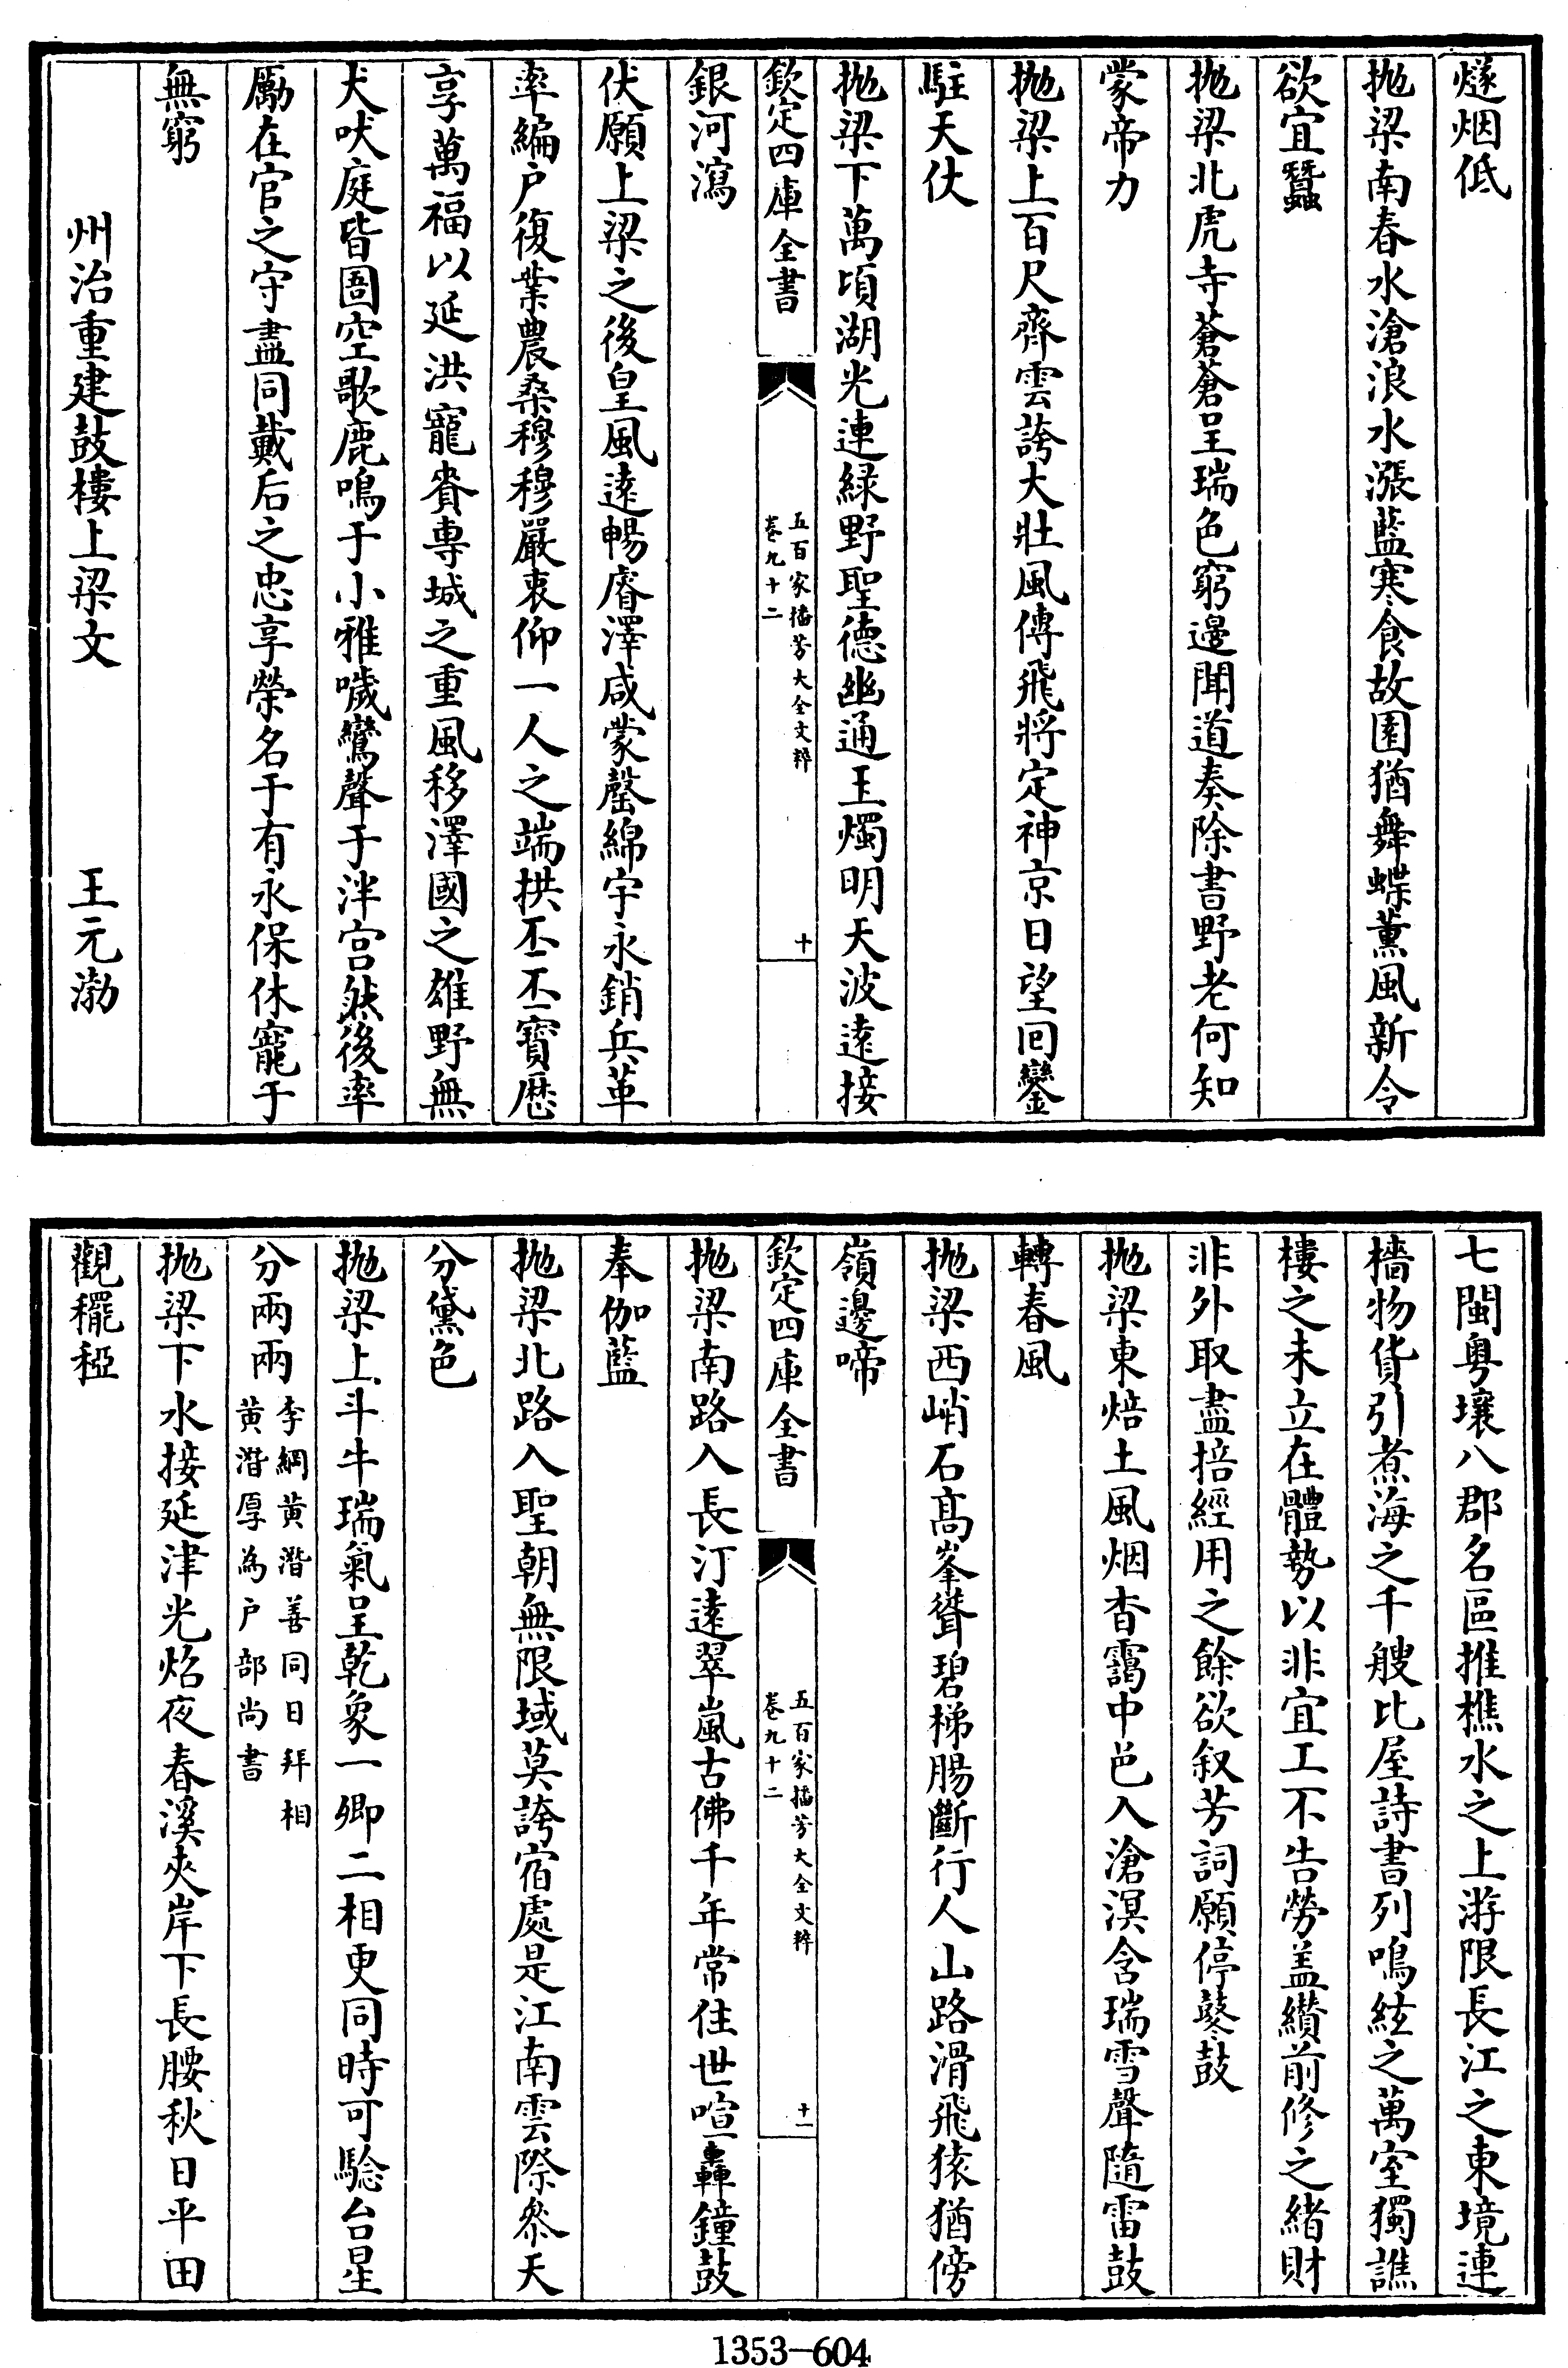 燧烟低
抛梁南春水滄浪水漲藍寒食故園猶舞蝶薰風新令
欲宜蠶
抛梁北虎寺蒼蒼呈瑞色窮邊聞道奏除書野老何知
蒙帝力
抛梁上百尺齊雲誇大壯風傳飛將定神京日望回鑾
駐天仗
抛梁下萬頃湖光連緑野聖德幽通玉燭明天波遠接
欽定四庫全書
五百家播芳大全文粹
卷九十二
十
銀河瀉
伏願上梁之後皇風遠暢睿澤咸蒙罄綿宇永銷兵革
率編户復業農桑穆穆嚴衷仰一人之端拱丕丕寶歷
享萬福以延洪寵賚專城之重風移澤國之雄野無
犬吠庭皆圄空歌鹿鳴于小雅噦鸞聲于泮宫然後率
勵在官之守盡同戴后之忠享榮名于有永保休寵于
無窮
州治重建鼓樓上梁文 王元渤
七閩粤壤八郡名區推樵水之上游限長江之東境連
檣物貨引煮海之千艘比屋詩書列鳴絃之萬室獨譙
樓之未立在體勢以非宜工不告勞盖纘前修之緒財
非外取盡掊經用之餘欲叙芳詞願停鼛鼓
抛梁東焙土風烟杳靄中邑入滄溟含瑞雪聲隨雷鼓
轉春風
抛梁西峭石髙峯聳碧梯腸斷行人山路滑飛猿猶傍
嶺邊啼
欽定四庫全書
五百家播芳大全文粹
卷九十二
十一
抛梁南路入長汀遠翠嵐古佛千年常住世喧轟鐘鼓
奉伽藍
抛梁北路入聖朝無限域莫誇宿處是江南雲際叅天
分黛色
抛梁上斗牛瑞氣呈乾象一卿二相更同時可騐台星
分兩兩李綱黄潛善同日拜相
黄潛厚為户部尚書
抛梁下水接延津光焰夜春溪夾岸下長腰秋日平田
觀䆉稏
1353-604